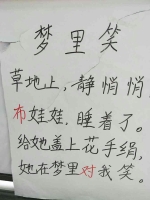 梦里笑
草地上，静悄悄，
布娃娃，睡着了。
给她盖上花手绢，
她在梦里对我笑。